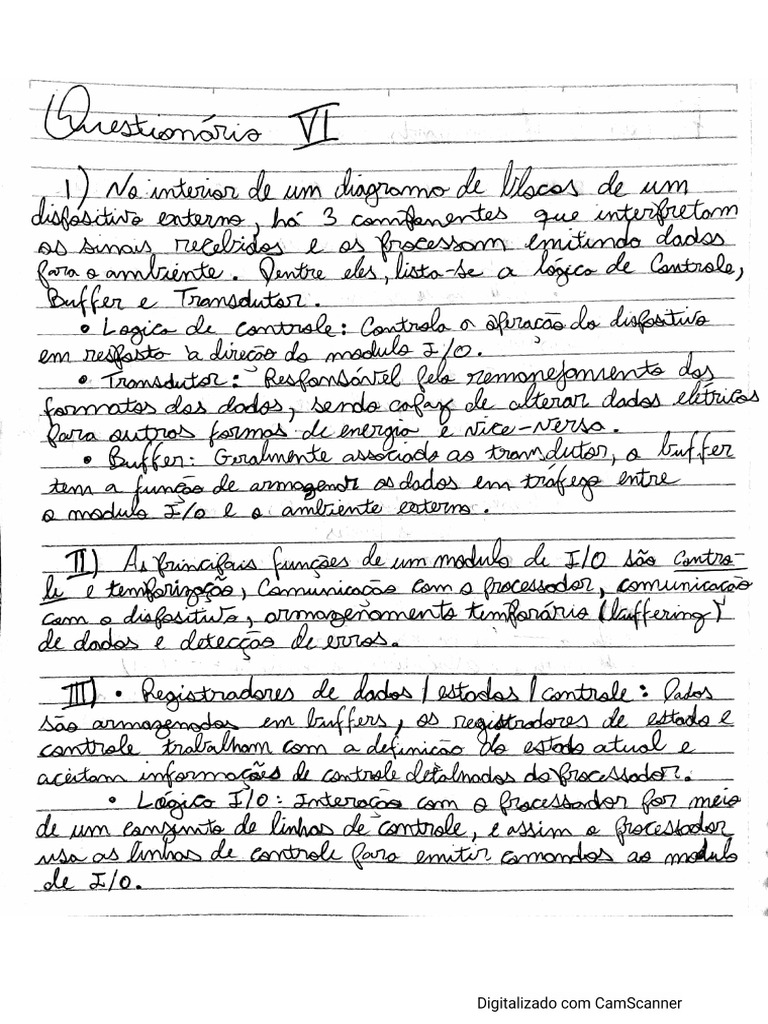 Questionário VI
1) No interior de um diagrama de blocos de um
dispositivo externo, há 3 componentes que interpretam
os sinais recebidos e os processam emitindo dados
para o ambiente. Dentre eles, lista-se a lógica de Controle,
Buffer e Transdutor.
• Logica de controle: Controla a operação do dispositivo
em resposta à direção do modulo I/O.
• Transdutor: Responsável pelo remanejamento dos
formatos dos dados, sendo capaz de alterar dados elétricos
para outros formas de energia e vice-versa.
• Buffer: Geralmente associado ao transdutor, o buffer
tem a função de armazenar os dados em tráfego entre
o modulo I/O e o ambiente externo.
II) As principais funções de um modulo de I/O são Contro-
le e temporização, Comunicação com o processador, comunicação
com o dispositivo, armazenamento temporário (buffering)
de dados e detecção de erros.
III) • Registradores de dados/estados/controle: Dados
são armazenados em buffers, os registradores de estado e
controle trabalham com a definição do estado atual e
aceitam informações de controle detalhados do processador.
• Lógica I/O: Interação com o processador por meio
de um conjunto de linhas de controle, e assim o processador
usa as linhas de controle para emitir comandos ao modulo
de I/O.
Digitalizado com CamScanner